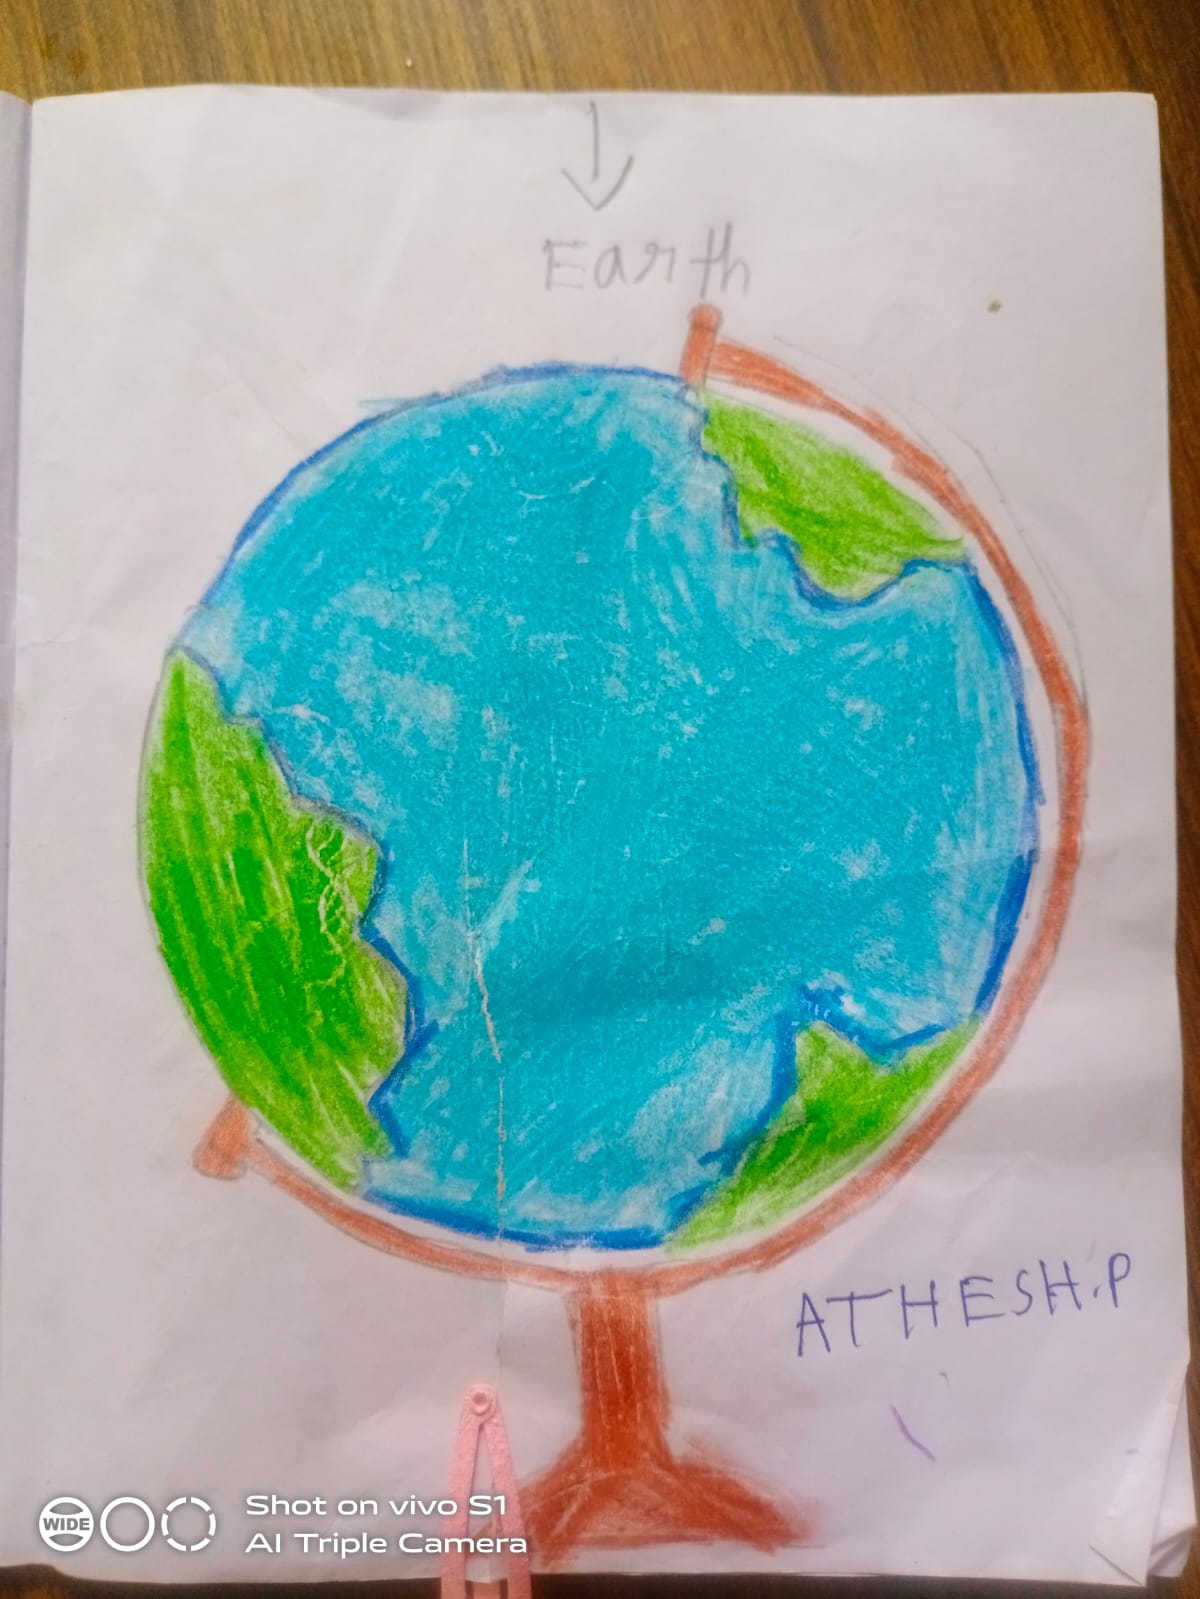 Earth
ATHESH.P
WIDE
Shot on vivo S1
AI Triple Camera